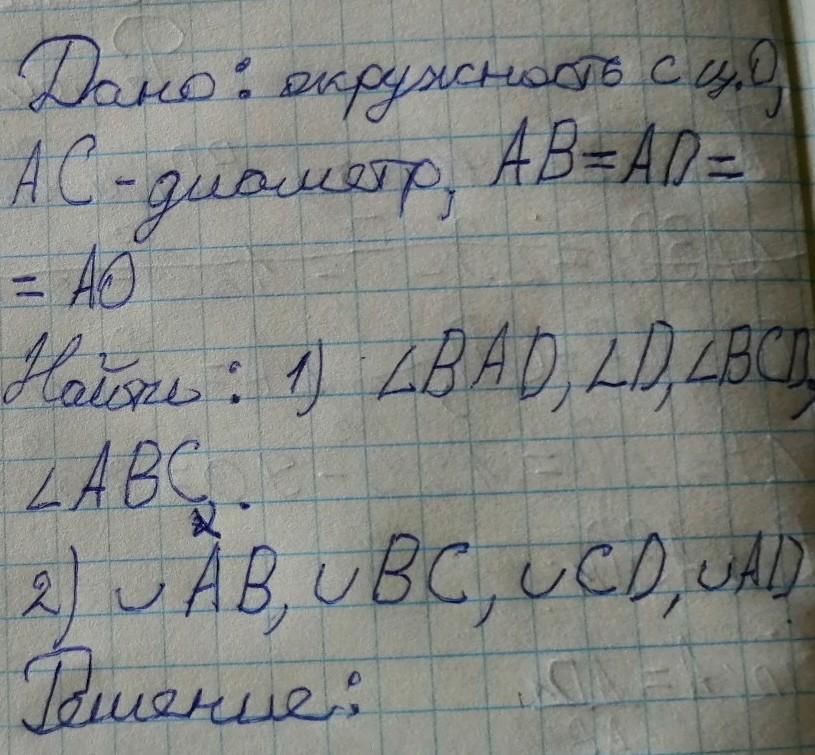 Дано: окружность с ц.О,
АС - диаметр, АВ=АD=
= АО
Найти: 1) ∠BAD, ∠D, ∠BCD,
∠ABC.
2) ∪AB, ∪BC, ∪CD, ∪AD
Решение: